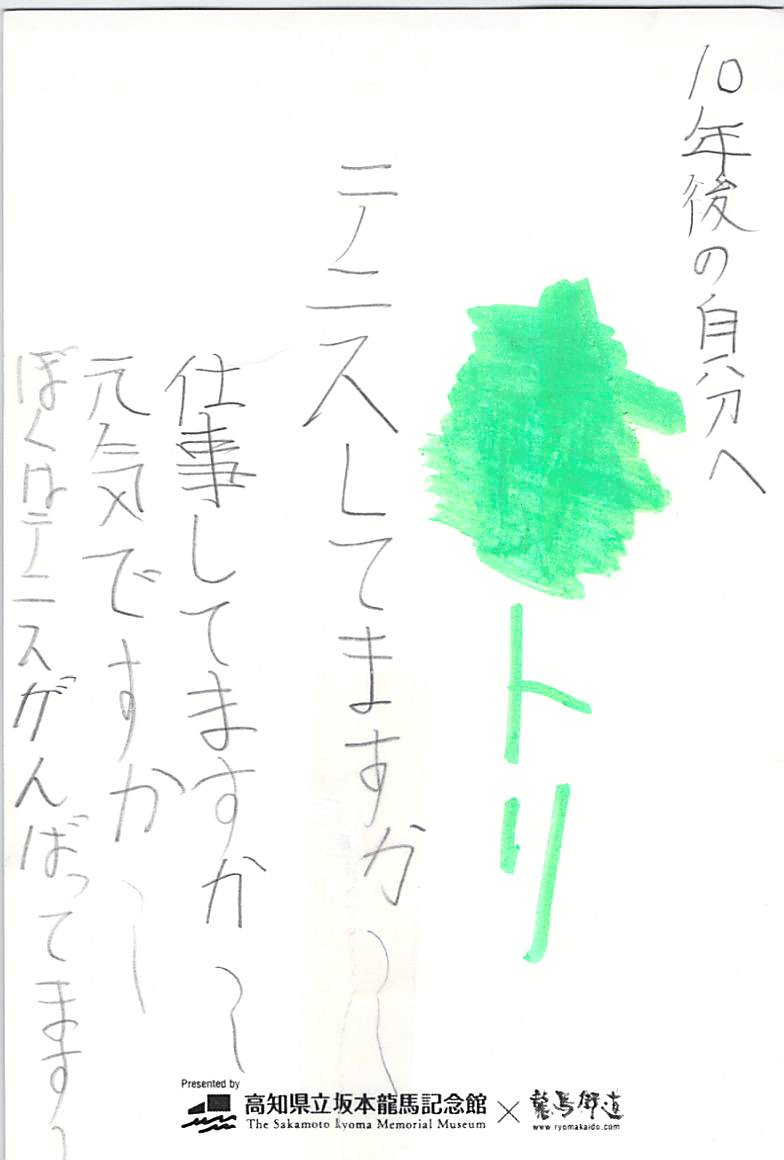 10年後の自分へ
トリ
テニスしてますか〜
仕事してますか〜
元気ですか〜
ぼくはテニスがんばってます〜
Presented by
高知県立坂本龍馬記念館
The Sakamoto Ryoma Memorial Museum
×
龍馬街道
www.ryomakaido.com